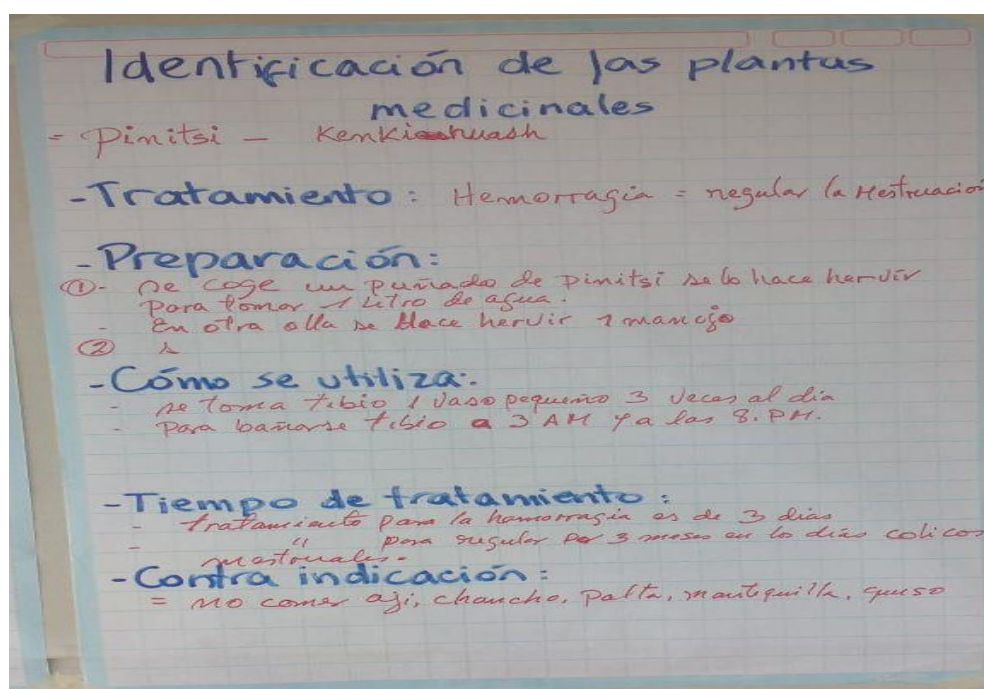 Identificación de las plantas
medicinales
= Pinitsi - Kenkiashuash
- Tratamiento: Hemorragia = regular la Mestruación
- Preparación:
①- se coge un puñado de pinitsi se lo hace hervir
Para tomar 1 Litro de agua.
- En otra olla se Hace hervir 1 manojo
② s
- Cómo se utiliza:
- se toma tibio 1 Vaso pequeño 3 veces al día
- Para bañarse tibio a 3 AM y a las 8. PM.
- Tiempo de tratamiento:
- tratamiento para la hemorragia es de 3 dias
- " para regular por 3 meses en lo dias colicos
- Contra indicación:
= no comer aji, chancho, Palta, mantequilla, queso